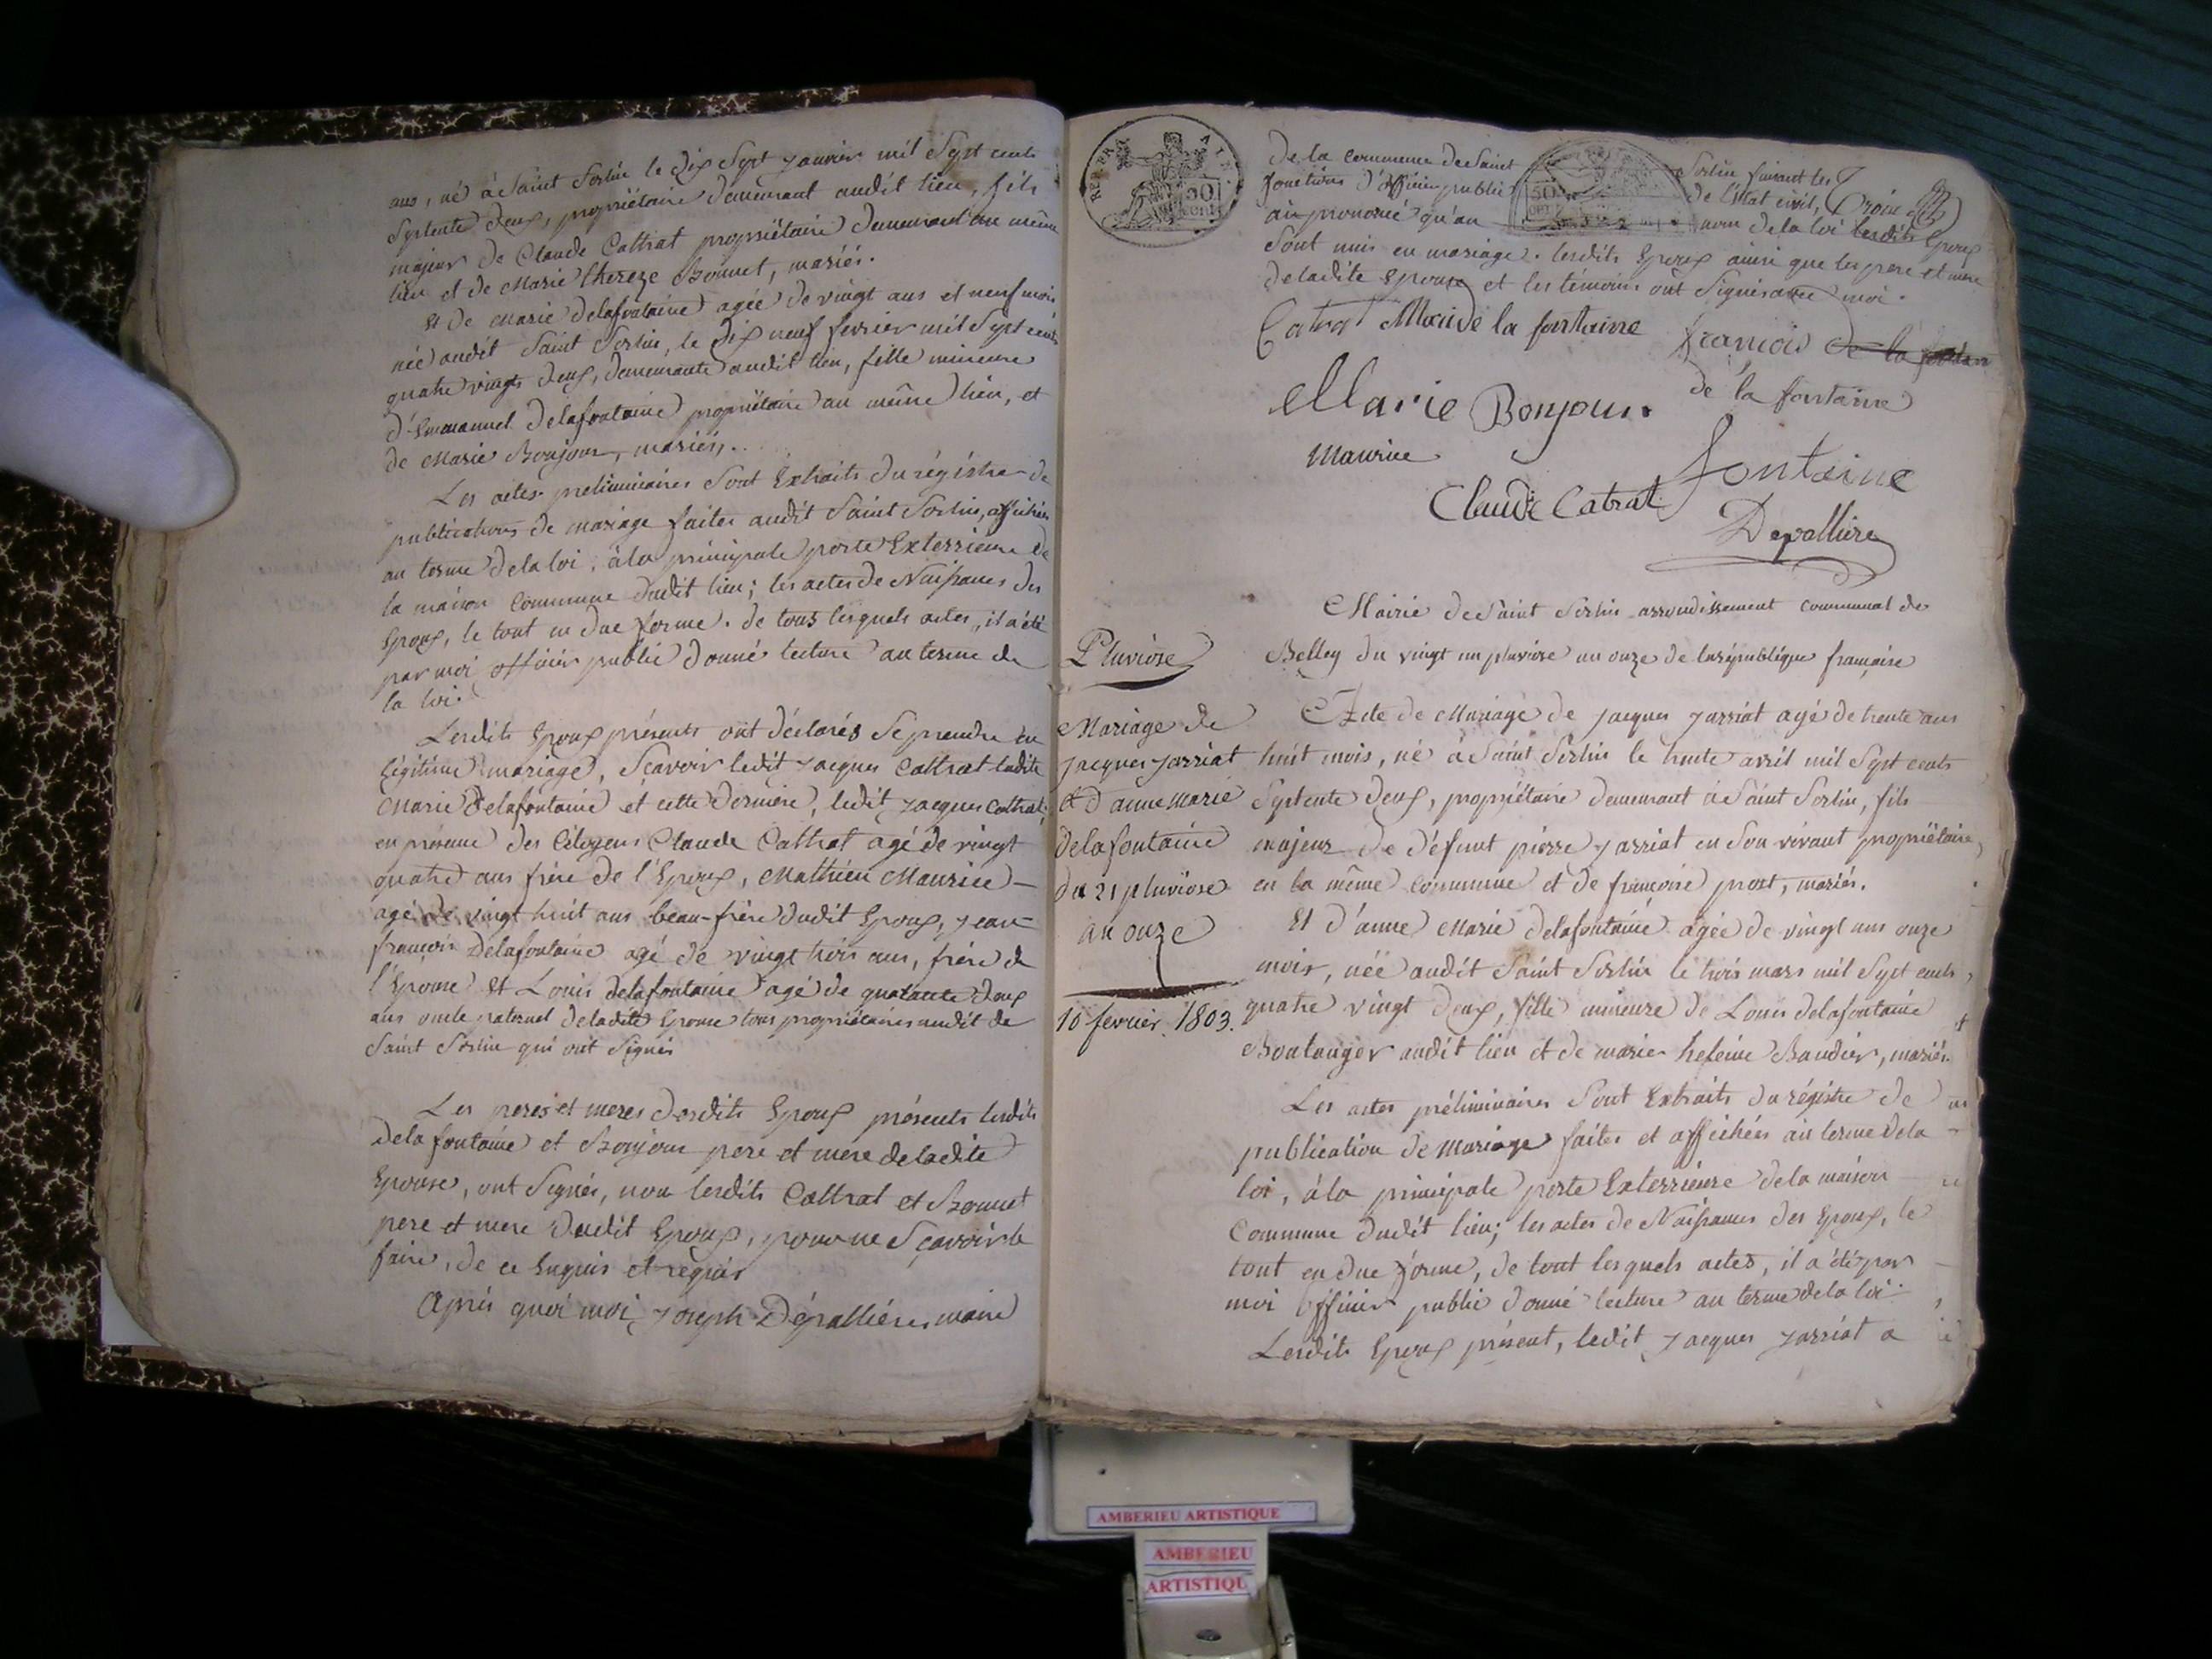 ans, né à Saint Sorlin le dix Sept janvier mil Sept cents
Septente deux, propriétaire demeurant audit lieu, fils
majeur de Claude Cattrat propriétaire demeurant au même
lieu et de Marie thereze Bonnet, mariés.
Et de Marie delafontaine agée de vingt ans et neuf mois
née audit Saint Sorlin, le dix neuf fevrier mil Sept cents
quatre vingts deux, demeurante audit lieu, fille mineure
d'Emmanuel delafontaine propriétaire au même lieu, et
de Marie Bonjour, mariés,
Les actes preliminaires Sont Extraits du régistre de
publications de mariage faites audit Saint Sorlin, affichées
au terme de la loi, à la principale porte Exterrieure de
la maison Commune dudit lieu; les actes de Naissances des
Epoux, le tout en due forme. de tous lesquels actes, il a été
par moi officier public donné lecture au terme de
la loi.
Lesdits Epoux présents ont déclarés Se prendre en
légitime mariage, Sçavoir ledit Jacques Cattrat ladite
Marie delafontaine et cette derniere, ledit Jacques Cattrat,
en présence des Citoyens Claude Cattrat agé de vingt
quatre ans frère de l'Epoux, Mathieu Maurice
agé de vingt huit ans beau-frère dudit Epoux, Jean
françois Delafontaine agé de vingt trois ans, frère de
l'Epouse Et Louis delafontaine agé de quarante deux
ans oncle paternel de ladite Epouse tous propriétaires audit de
Saint Sorlin qui ont Signés
Les peres et meres desdits Epoux présents lesdits
Dela fontaine et Bonjour pere et mere de ladite
Epouse, ont Signés, non lesdits Cattrat et Bonnet
pere et mere dudit Epoux, pour ne Sçavoir le
faire, de ce Enquis et requis
Après quoi moi, Joseph Dépallières maire
de la commune de Saint Sorlin faisant les
fonctions d'officier public de l'état civil,
ai prononcé qu'au nom de la loi lesdits Epoux
Sont unis en mariage. lesdits Epoux ainsi que les pere et mere
de ladite Epouse et les témoins ont Signés avec moi.
Catrat Marie de la fontaine
francois de la fontaine
de la fontaine
Marie Bonjour
Maurice
fontaine
Claude Catrat
Depallière
Mairie de Saint Sorlin arrondissement communal de
Belley du vingt un pluviose an onze de la république française
Pluviose
Mariage de
jacques jarriat
et d'anne marie
delafontaine
du 21 pluviose
an onze
10 fevrier 1803.
Acte de Mariage de jacques jarriat agé de trente ans
huit mois, né à Saint Sorlin le trente avril mil Sept cents
Septente deux, propriétaire demeurant à Saint Sorlin, fils
majeur de défunt pierre jarriat en Son vivant propriétaire,
en la même commune et de françoise prost, mariés.
Et d'anne Marie delafontaine agée de vingt ans onze
mois, née audit Saint Sorlin le trois mars mil Sept cents,
quatre vingt deux, fille mineure de Louis delafontaine
Boulanger audit lieu et de marie heleine Baudier, mariés.
Les actes préliminaires Sont Extraits du régistre de
publication de Mariage faites et affichées au terme de la
loi, à la principale porte Exterrieure de la maison
Commune dudit lieu; les actes de Naissances des Epoux, le
tout en due forme, de tout lesquels actes, il a été par
moi officier public donné lecture au terme de la loi.
Lesdits Epoux présent, ledit Jacques jarriat a
AMBERIEU ARTISTIQUE
AMBERIEU
ARTISTIQU